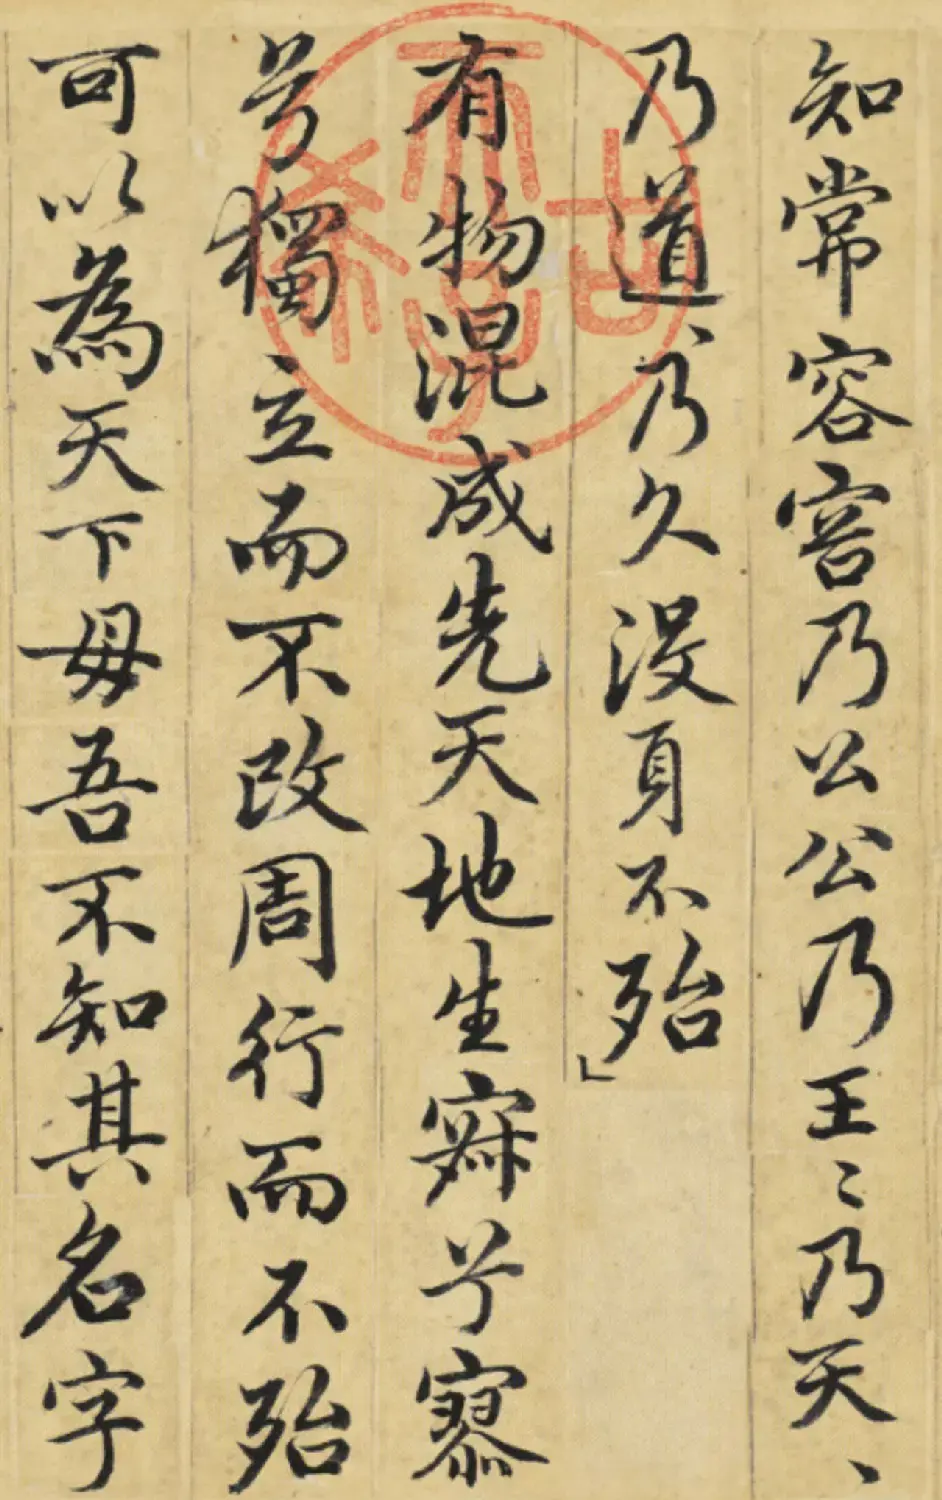 知常容容乃公公乃王〻乃天〻
乃道〻乃久没身不殆」
有物混成先天地生寂兮寥
兮獨立而不改周行而不殆
可以為天下母吾不知其名字
古希天子